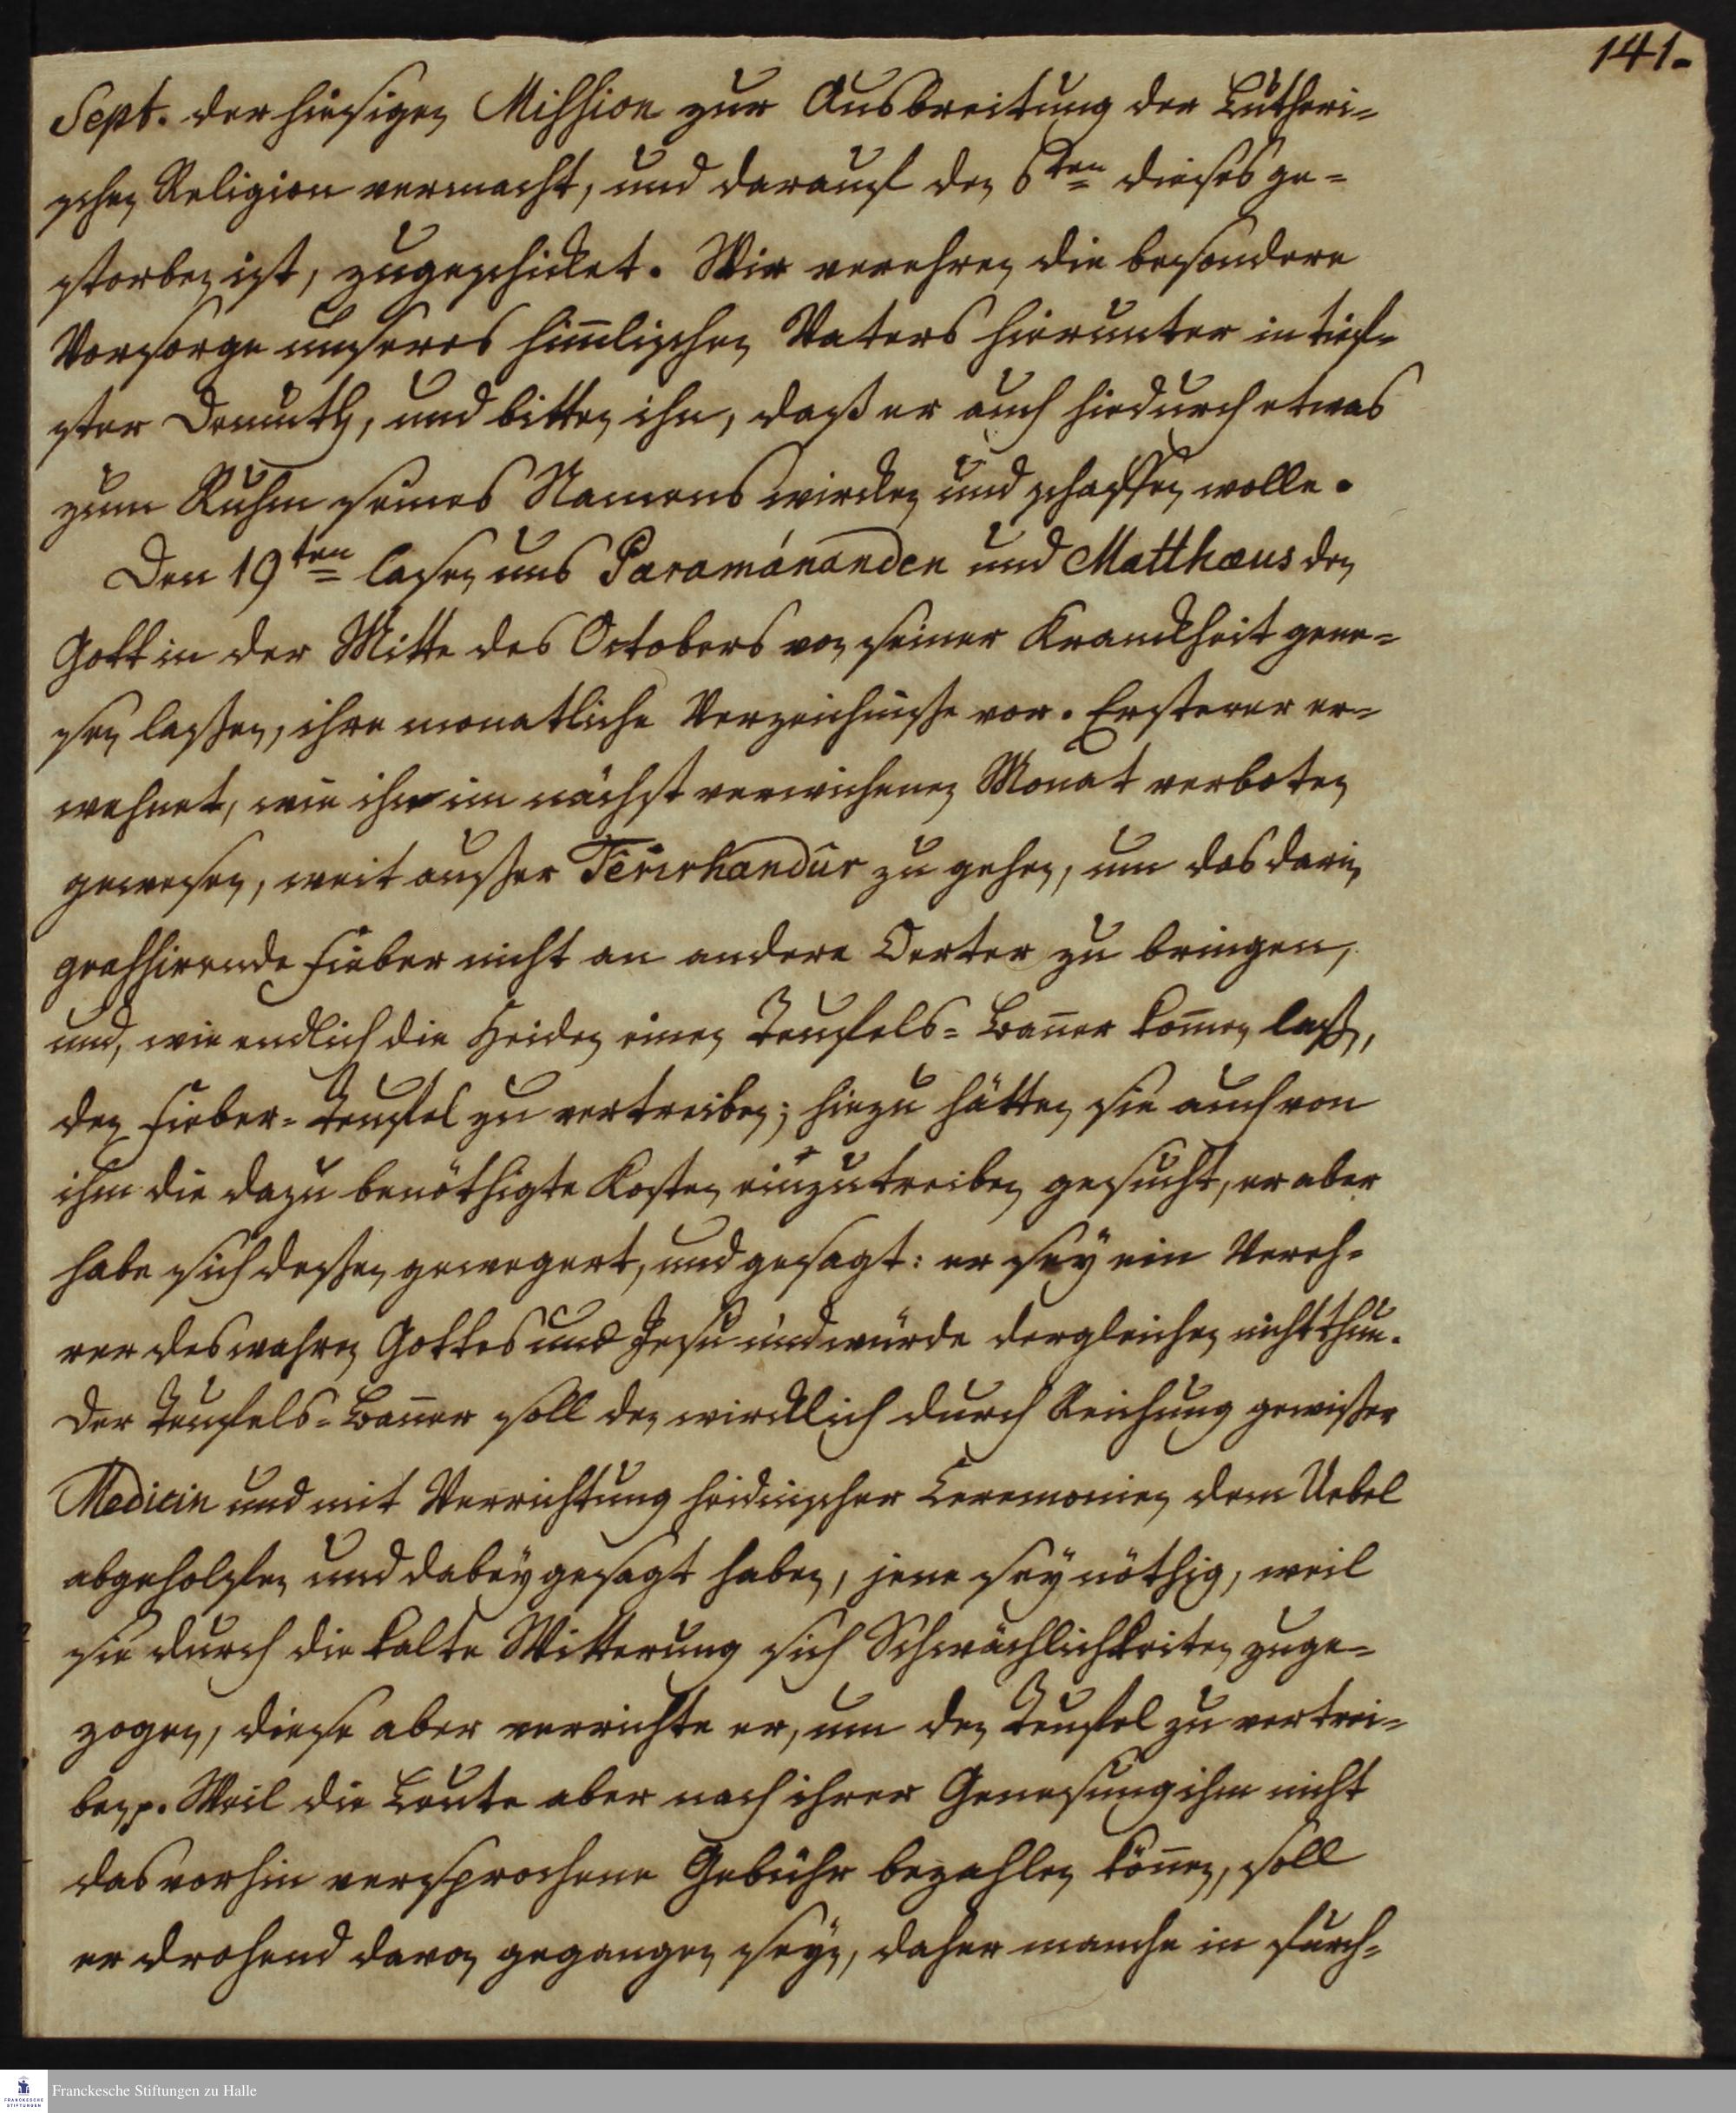 141.
Sept. der hiesigen Mission zur Ausbreitung der Lutheri-
schen Religion vermacht, und darauf den 6ten dieses ge-
storben ist, zugeschicket. Wir verehren die besondere
Vorsorge unseres him̄lischen Vaters hierunter in tief-
ster Demuth, und bitten ihn, daß er auch hiedurch etwas
zum Ruhm seines Namens wircken und schaffen wolle.
Den 19ten lasen uns Paramánanden und Matthæus den
Gott in der Mitte des Octobers von seiner Kranckheit gene-
sen laßen, ihre monatliche Verzeichniße vor. Ersterer er-
wehnet, wie ihm im nächst verwichenen Monat verboten
gewesen, weit außer zu gehen, um das darin
grassirende Fieber nicht an andere Oerter zu bringen,
und, wie endlich die Heiden einen Teufels-Baner kom̄en laß,
den Fieber-Teufel zu vertreiben; hiezu hätten sie auch von
ihm die dazu benöthigte Kosten einzutreiben gesucht, er aber
habe sich deßen gewegert, und gesagt: er sey ein Vereh-
rer des wahren Gottes und Jesu und würde dergleichen nicht thun.
Der Teufels-Ban̄er soll den wircklich durch Reichung gewißer
Medicin und mit Verrichtung heidnischer Ceremonien dem Uebel
abgeholfen und dabey gesagt haben, jene sey nöthig, weil
sie durch die kalte Witterung sich Schwächlichkeiten zuge-
zogen, diese aber verrichte er, um den Teufel zu vertrei-
ben p. Weil die Leute aber nach ihrer Genesung ihm nicht
das vorhin versprochene Gebühr bezahlen kön̄en, soll
er drohend davon gegangen seyn, daher manche in Furch-
Franckesche Stiftungen zu Halle
FRANCKESCHE
STIFTUNGEN